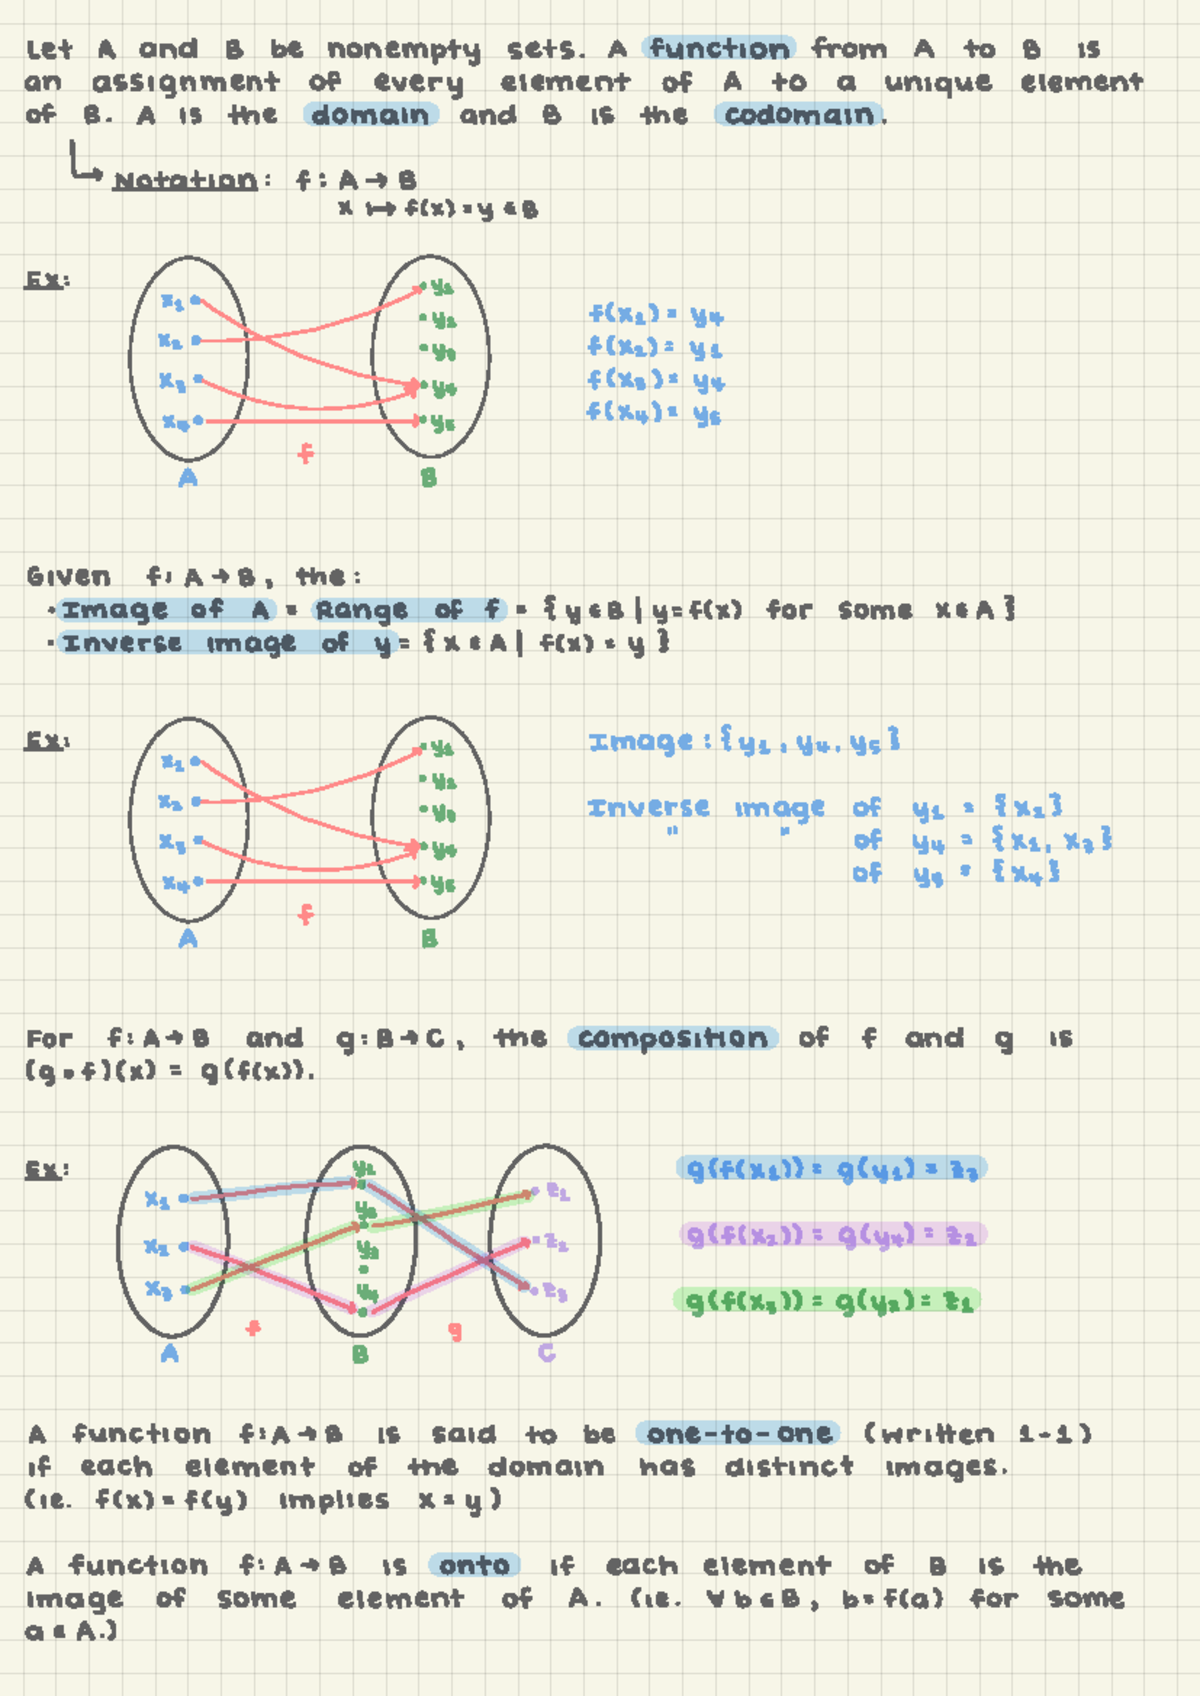 Let A and B be nonempty sets. A function from A to B is
an assignment of every element of A to a unique element
of B. A is the domain and B is the codomain.
Notation: f: A → B
x ↦ f(x) = y ∈ B
Ex:
x₁
x₂
x₃
x₄
y₁
y₂
y₃
y₄
y₅
f
A
B
f(x₁) = y₄
f(x₂) = y₁
f(x₃) = y₄
f(x₄) = y₅
Given f: A → B, the:
• Image of A = Range of f = { y ∈ B | y = f(x) for some x ∈ A }
• Inverse image of y = { x ∈ A | f(x) = y }
Ex:
x₁
x₂
x₃
x₄
y₁
y₂
y₃
y₄
y₅
f
A
B
Image: { y₁, y₄, y₅ }
Inverse image of y₁ = { x₂ }
" " of y₄ = { x₁, x₃ }
of y₅ = { x₄ }
For f: A → B and g: B → C, the composition of f and g is
(g ∘ f)(x) = g(f(x)).
Ex:
x₁
x₂
x₃
y₁
y₂
y₃
y₄
z₁
z₂
z₃
f
g
A
B
C
g(f(x₁)) = g(y₁) = z₃
g(f(x₂)) = g(y₄) = z₂
g(f(x₃)) = g(y₂) = z₁
A function f: A → B is said to be one-to-one (written 1-1)
if each element of the domain has distinct images.
(ie. f(x) = f(y) implies x = y)
A function f: A → B is onto if each element of B is the
image of some element of A. (ie. ∀ b ∈ B, b = f(a) for some
a ∈ A.)